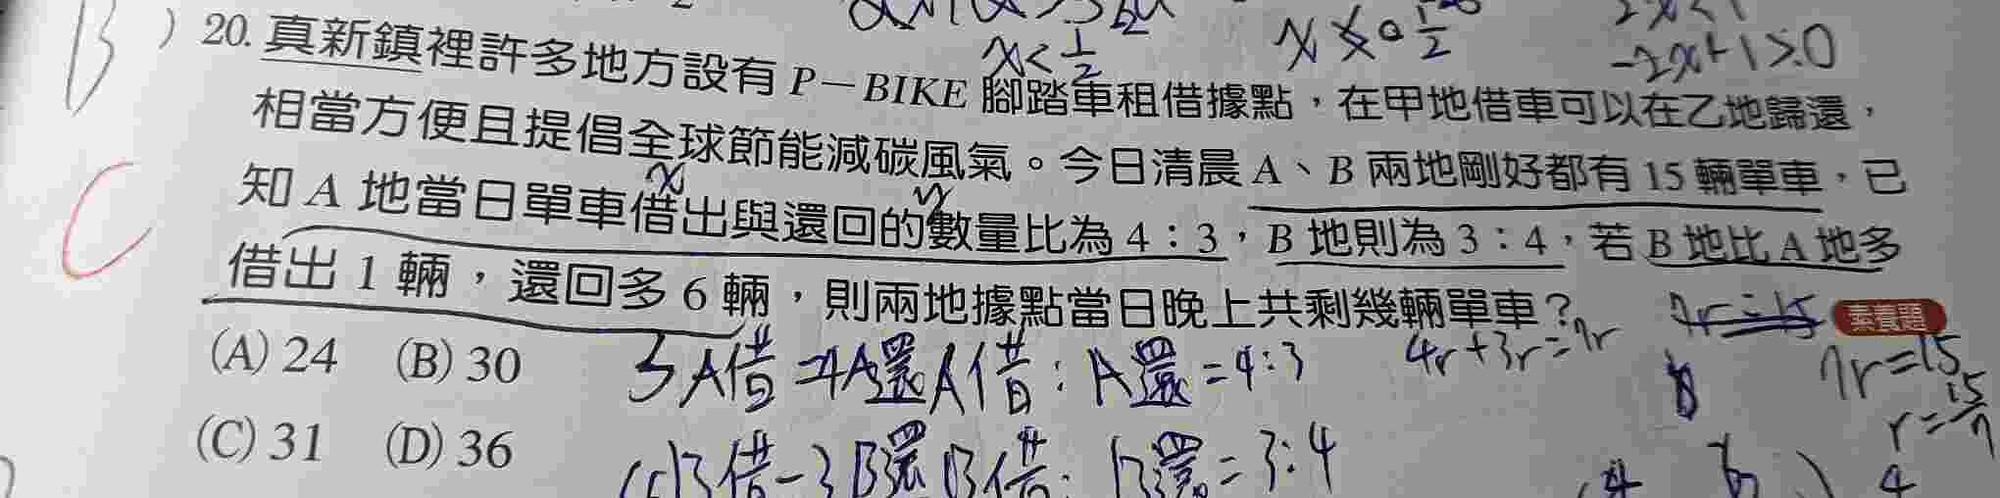 x<1/2
2x<1
-2x+1>0
B ) 20. 真新鎮裡許多地方設有 P－BIKE 腳踏車租借據點，在甲地借車可以在乙地歸還，
相當方便且提倡全球節能減碳風氣。今日清晨 A、B 兩地剛好都有 15 輛單車，已
x y
知 A 地當日單車借出與還回的數量比為 4：3，B 地則為 3：4，若 B 地比 A 地多
C
借出 1 輛，還回多 6 輛，則兩地據點當日晚上共剩幾輛單車？ 素養題
(A) 24 (B) 30
3A借=4A還 A借：A還=4:3 4r+3r=7r 7r=15
r=15/7
(C) 31 (D) 36
B借：B還=3:4